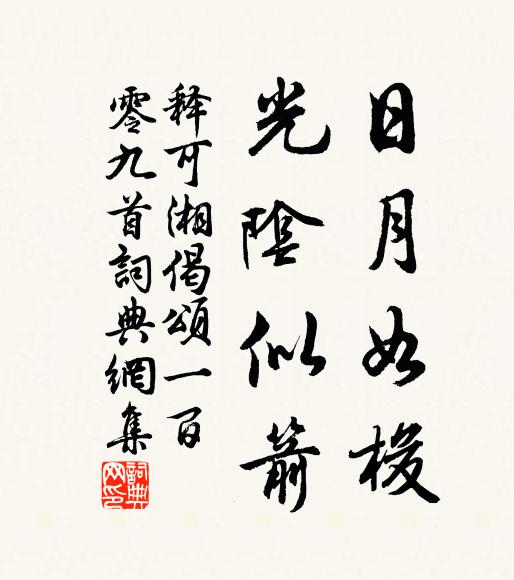 日月如梭
光陰似箭
释可湘偈頌一百
零九首詞典網集
詞典網印